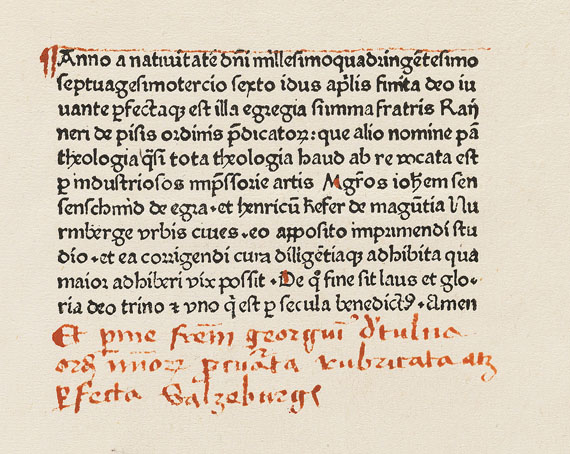 ¶Anno a natiuitate dn̄i millesimoquadringētesimo
septuagesimotercio sexto idus ap̄lis finita deo iu
uante ꝑfectaqꝫ est illa egregia summa fratris Rai
neri de pisis ordinis p̄dicatoꝝ: que alio nomine pā
theologia q̄si tota theologia haud ab re vocata est
ꝑ industriosos imp̄ssorie artis Mgr̄os ioh̄em sen
senschmid de egra · et henricū kefer de magūtia Nu
rmberge vrbis ciues · eo apposito imprimendi stu
dio · et ea corrigendi cura diligētiaqꝫ adhibita qua
maior adhiberi vix possit · De qͦ fine sit laus et glo-
ria deo trino ⁊ vno q̇ est ꝑ secula benedictꝯ · Amen
Et ꝑ me fr̄em georgiū
ord̄ rubricata atqꝫ
ꝑfecta Salzeburge